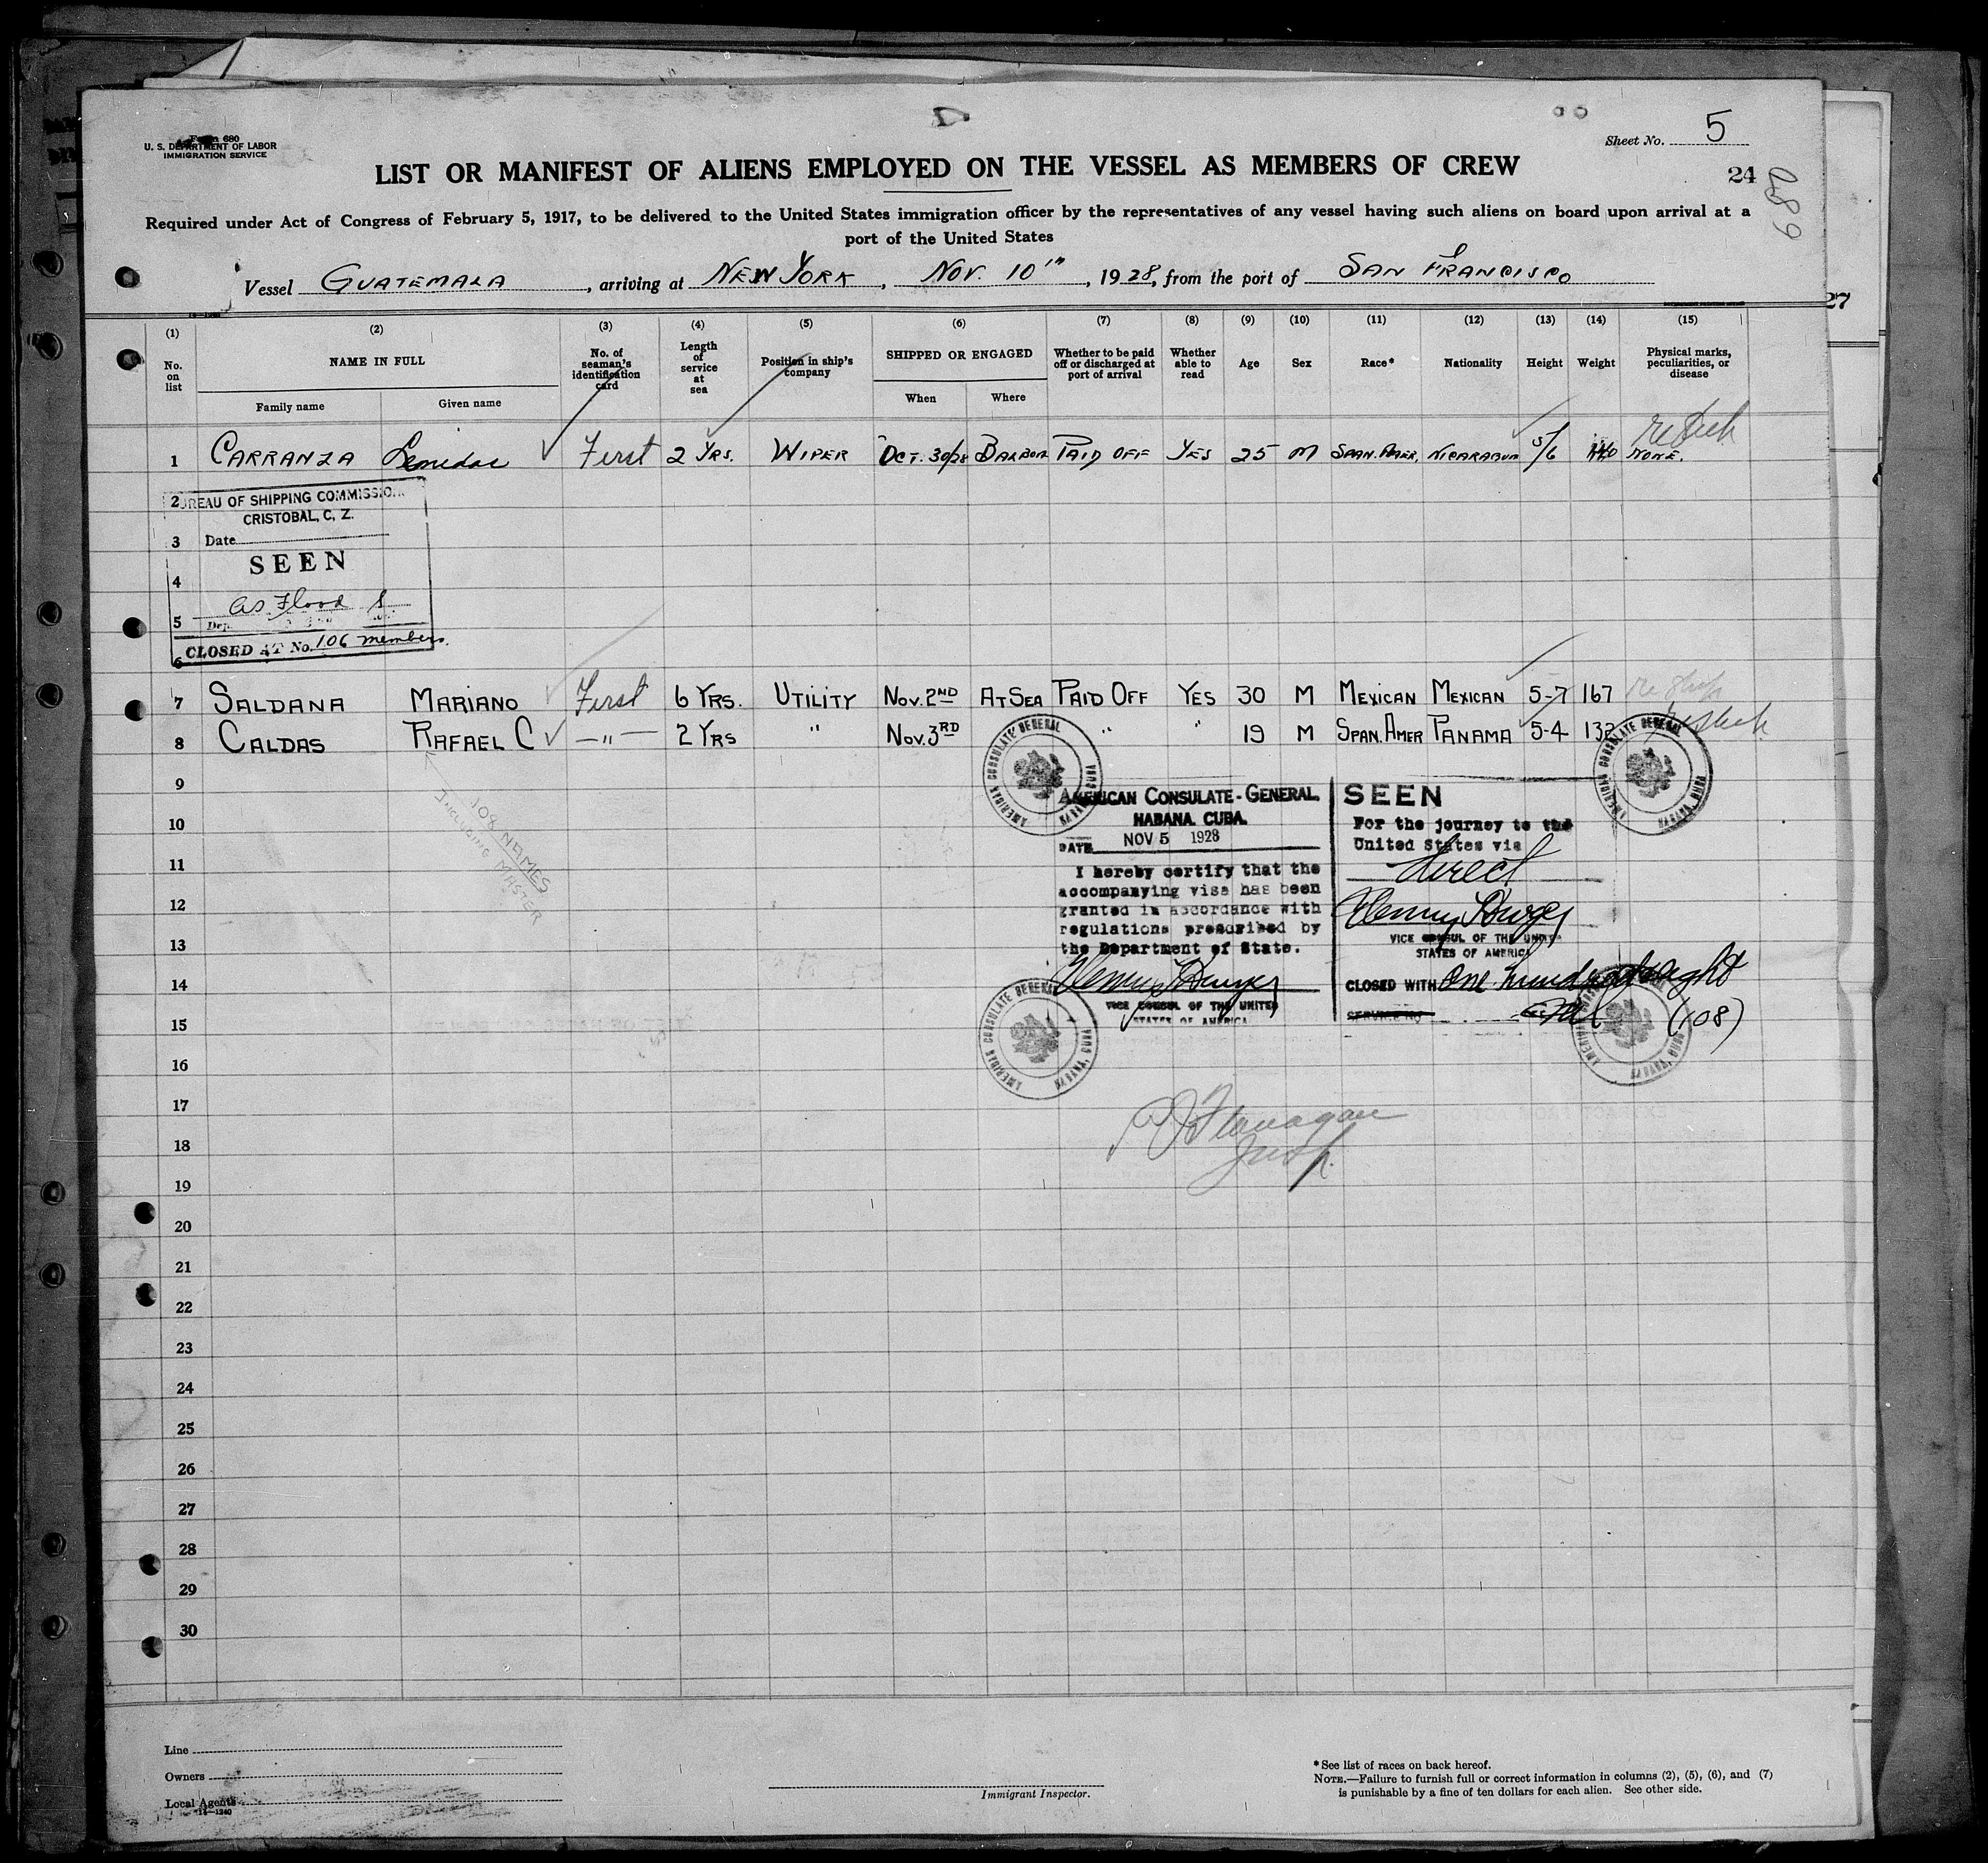 Form 680
U. S. DEPARTMENT OF LABOR
IMMIGRATION SERVICE
Sheet No. 5
LIST OR MANIFEST OF ALIENS EMPLOYED ON THE VESSEL AS MEMBERS OF CREW
24
689
Required under Act of Congress of February 5, 1917, to be delivered to the United States immigration officer by the representatives of any vessel having such aliens on board upon arrival at a
port of the United States
Vessel GUATEMALA, arriving at NEW YORK, NOV. 10th, 1928, from the port of SAN FRANCISCO
27
(1) (2) (3) (4) (5) (6) (7) (8) (9) (10) (11) (12) (13) (14) (15)
No. on list
NAME IN FULL
Family name
Given name
No. of seaman's identification card
Length of service at sea
Position in ship's company
SHIPPED OR ENGAGED
When
Where
Whether to be paid off or discharged at port of arrival
Whether able to read
Age
Sex
Race*
Nationality
Height
Weight
Physical marks, peculiarities, or disease
1 CARRANZA Leonidas First 2 YRS. WIPER OCT. 30/28 BALBOA PAID OFF YES 25 M SPAN. AMER. NICARAGUA 5/6 140 NONE.
2 BUREAU OF SHIPPING COMMISSION
CRISTOBAL, C. Z.
3 Date
SEEN
4
5
6 CLOSED AT No. 106 members.
7 SALDANA MARIANO First 6 YRS. UTILITY NOV. 2ND AT SEA PAID OFF YES 30 M MEXICAN MEXICAN 5-7 167
8 CALDAS RAFAEL C — " — 2 YRS " NOV. 3RD " " 19 M SPAN. AMER PANAMA 5-4 132
108 NAMES
INCLUDING MASTER
AMERICAN CONSULATE GENERAL HABANA, CUBA
AMERICAN CONSULATE GENERAL HABANA, CUBA
9
AMERICAN CONSULATE-GENERAL
HABANA. CUBA.
DATE NOV 5 1928
I hereby certify that the
accompanying visa has been
granted in accordance with
regulations prescribed by
the Department of State.
VICE CONSUL OF THE UNITED
STATES OF AMERICA
SEEN
For the journey to the
United States via
direct
VICE CONSUL OF THE UNITED
STATES OF AMERICA
CLOSED WITH One hundred eight
(108)
AMERICAN CONSULATE GENERAL HABANA, CUBA
AMERICAN CONSULATE GENERAL HABANA, CUBA
10
11
12
13
14
15
16
17
Flanagan
18
19
20
21
22
23
24
25
26
27
28
29
30
Line
Owners
Local Agents
14—1240
Immigrant Inspector.
* See list of races on back hereof.
NOTE.—Failure to furnish full or correct information in columns (2), (5), (6), and (7)
is punishable by a fine of ten dollars for each alien. See other side.